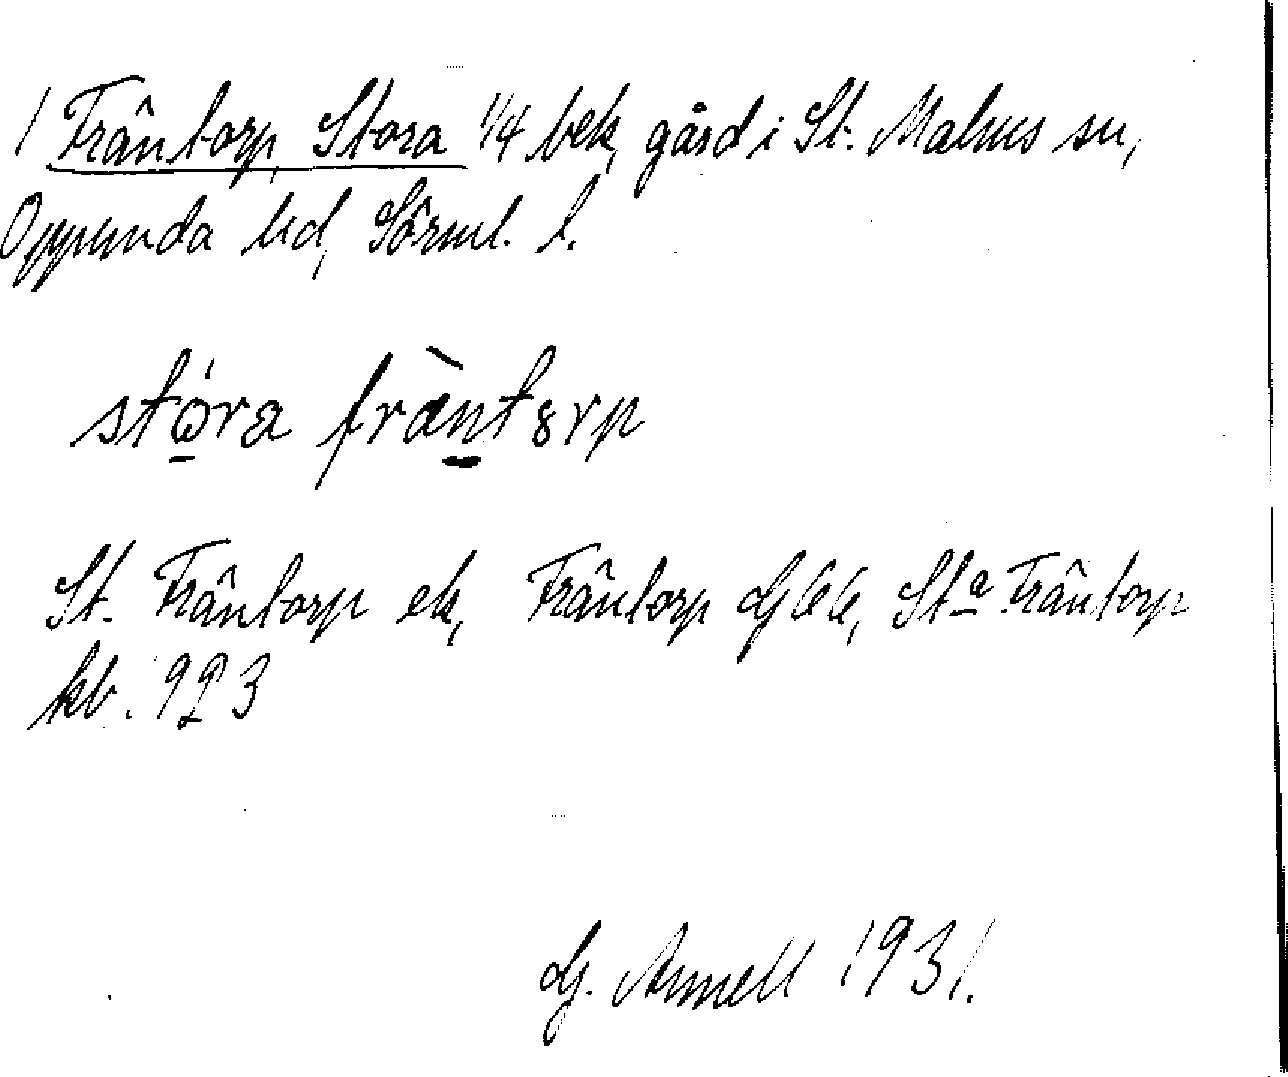 1 Fräntorp, Stora 1/4 bek, gård i St. Malms sn,
Oppunda hd, Sörml. l.
stóra fræ̀ntorp
St. Fräntorp ek, Fräntorp GEK, Sta Fräntorp
kb. 1923
G. Annell 1931.